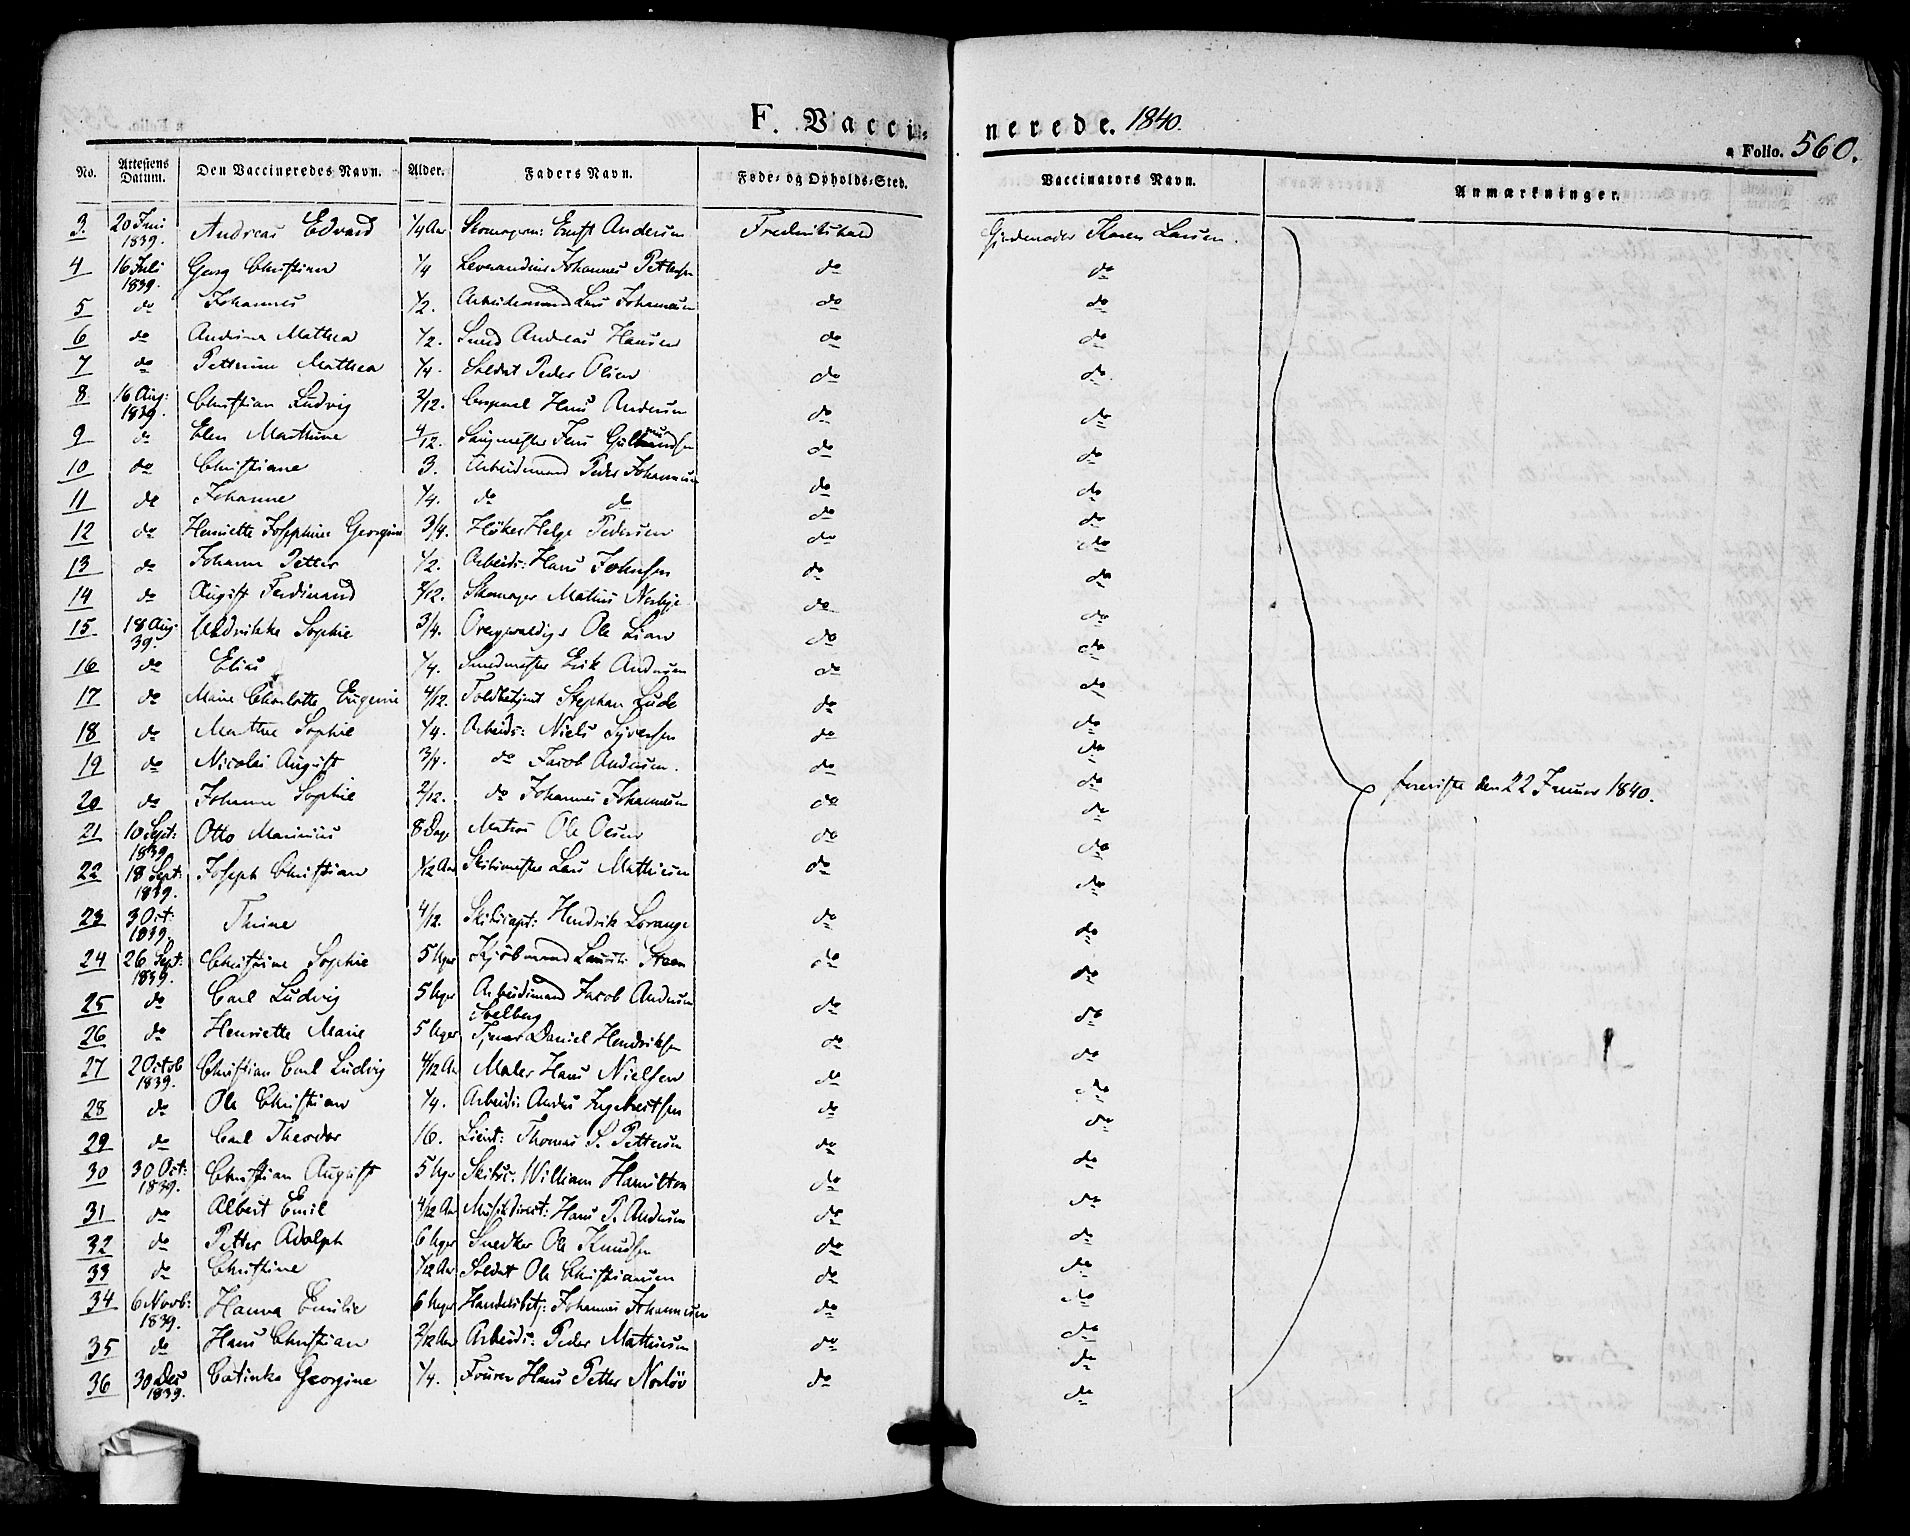 F. Vacci-
nerede. 1840.
a Folio. 560.
No. Attestens Datum. Den Vaccineredes Navn. Alder. Faders Navn. Føde- og Opholds-Sted. Vaccinators Navn. Anmærkninger.
3. 20 Juni 1839. Andreas Edvard 1/4 Aar Skomagersv: Ernst Andersen Frederikshald Gjordemoder Karen Larsen.
4 16 Juli 1839. Georg Christian 1/4 Johannes Pettersen do do
5 do Johannes 1/2. Arbeidsmand Lars Johannesen do do
6 do Andrine Mathea 1/2. Smed Andreas Hansen do do
7 do Pettrine Mathea 1/4. Soldat Peder Olsen do do.
8. 16 Aug: 1839. Christian Ludvig 2/12. Corporal Hans Andersen do do
9 do Elen Marthine 4/12. Jens do do
10 do Christiane 3. Arbeidsmand Peder Johannesen do do
11 do Johanne 1/4. do do do do
12 do Henriette Josephine Georgine 3/4. Høker Helge Pedersen do do
13 do Johann Petter 1/2. Arbeids: Hans Johnsen do do
14 do August Ferdinand 2/12. Skomager Mathis Norbye do do
15 18 Aug: 39. Undrikke Sophie 3/4. Ole Lian do do
16 do Elias 1/4. Smedmester Erik Andersen do do
17 do Marie Charlotte Eugenie 4/12. Toldbetjent Stephan Lude do do
18 do Marthe Sophie 1/4. Arbeids: Niels Syversen do do
19 do Nicolai August 3/4. do Jacob Andersen. do do
20 do Johanne Sophie 2/12. do Johannes Johannesen do do
21 10 Sept: 1839. Otto Marinius 8 Dage Matros Ole Olsen do do
22 18 Sept: 1839. Joseph Christian 1/12 Aar Lars Mathisen do do
23 3 Oct: 1839. Thrine 4/12. Skibscapt: Hendrik Lorange do do
24 26 Sept: 1839. Christine Sophie 5 Uger Kjøbmand Lauritz Steen do do
25 do Carl Ludvig 5 Uger Arbeidsmand Jacob Andersen do do
26 do Henriette Marie 5 Uger Daniel Hendriksen do do
27 2 Octob 1839. Christian Carl Ludvig 4/12 Aar Maler Hans Nielsen do do
28 do Ole Christian 1/4. Arbeids: Anders Ingebretsen do do
29 do Carl Theodor 16. Lieut: Thomas S. Pettersen do do
30 30 Oct: 1839. Christian August 5 Uger Skibsc. William Hamilton do do
31 do Albert Emil 4/12 Aar Musikdirect: Hans P. Andersen do do
32 do Petter Adolph 6 Uger Snedker Ole Knudsen do do
33 do Christine 1/12 Aar Soldat Ole Christiansen do do
34 6 Novb: 1839. Hanna Emilie 6 Uger Handelsbetj: Johannes Johannesen do do
35 do Hans Christian 2/12 Aar Arbeids: Peder Mathiesen do do
36 30 Dec 1839. Catinka Georgine 1/4. Fourer Hans Petter Norløv do do
foreviste den 22 Januar 1840.